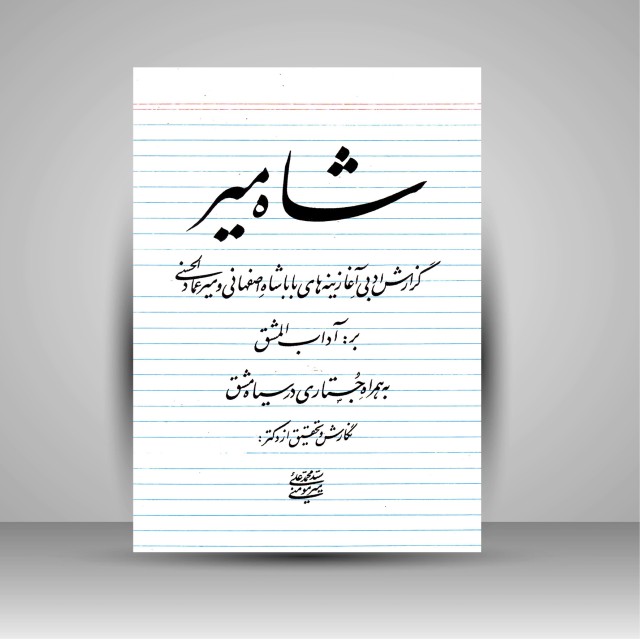 شاه میر
گزارش ادبی آغازینه های باباشاه اصفهانی و میرعماد الحسنی
بر: آداب المشق
به همراه جُستاری در سیاه مشق
نگارش و تحقیق از دکتر:
سیّد محمّد علی
میر مومنی